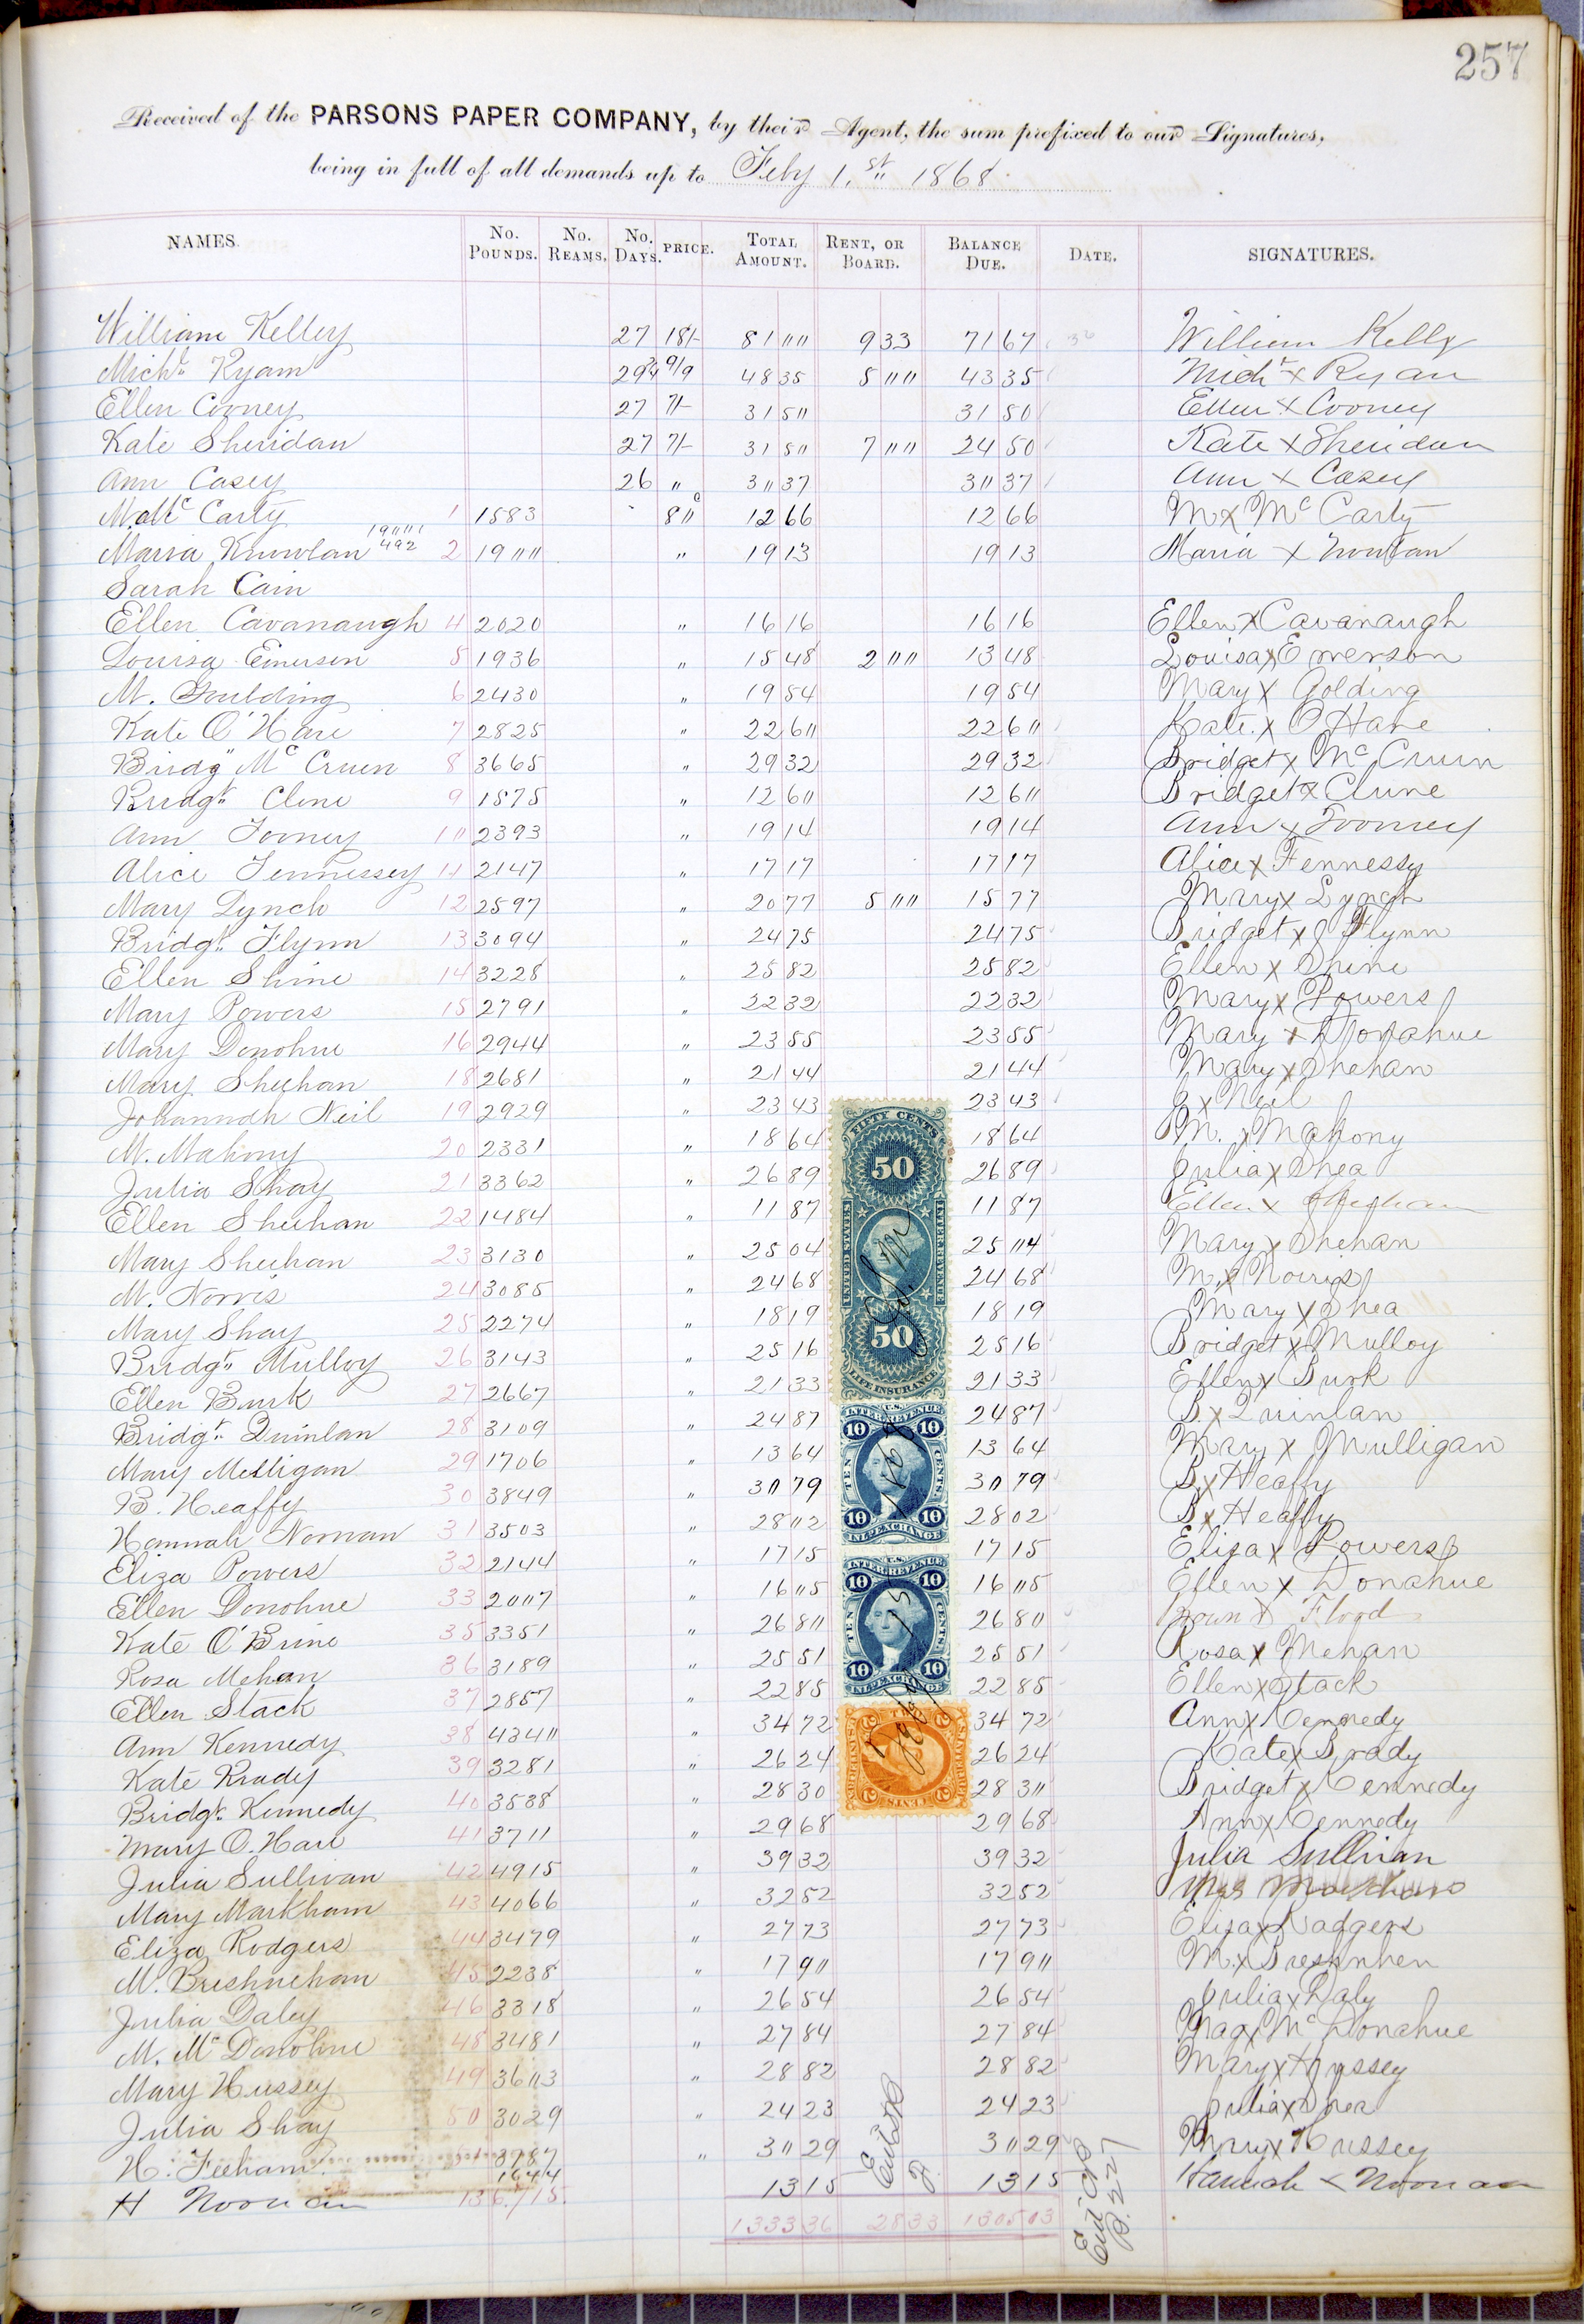 257
Received of the PARSONS PAPER COMPANY, by their Agent, the sum prefixed to our Signatures,
being in full of all demands up to Feby 1.st 1868.
NAMES. No. POUNDS. No. REAMS. No. DAYS. PRICE. TOTAL AMOUNT. RENT, OR BOARD. BALANCE DUE. DATE. SIGNATURES.
William Kelley 27 18/- 81 "" 9 33 71 67 William Kelly
Micht Ryam 29 3/4 9/9 48 35 5 "" 43 35 Micht x Ryan
Ellen Cooney 27 7/- 31 5" 31 50 Ellen x Cooney
Kate Sheridan 27 7/- 31 5" 7 "" 24 50 Kate x Sheridan
Ann Casey 26 " 3" 37 3" 37 Ann x Casey
M. Mc Carty 1 1583 8"c 12 66 12 66 M x Mc Carty
Maria Knowlan 19"" 492 2 19"" " 19 13 19 13 Maria x Nowlan
Sarah Cain
Ellen Cavanaugh 4 2020 " 16 16 16 16 Ellen x Cavanaugh
Louisa Emerson 5 1936 " 15 48 2 "" 13 48 Louisa x Emerson
M. Goulding 6 2430 " 19 54 19 54 Mary x Golding
Kate O'Hare 7 2825 " 22 6" 22 6" Kate x O Hare
Bridg" Mc Cruen 8 3665 " 29 32 29 32 Bridget x Mc Cruin
Bridgt Clune 9 1575 " 12 6" 12 6" Bridget x Clune
Ann Toomey 1" 2393 " 19 14 19 14 Ann x Toomey
Alice Fennessey 11 2147 " 17 17 17 17 Alice x Fennessy
Mary Lynch 12 2597 " 20 77 5 "" 15 77 Mary x Lynch
Bridgt Flynn 13 3094 " 24 75 24 75 Bridget x Flynn
Ellen Shine 14 3228 " 25 82 25 82 Ellen x Shine
Mary Powers 15 2791 " 22 32 22 32 Mary x Powers
Mary Donohue 16 2944 " 23 55 23 55 Mary x Donahue
Mary Sheehan 18 2681 " 21 44 21 44 Mary x Shehan
Johannah Neil 19 2929 " 23 43 23 43 J x Neil
M. Mahony 20 2331 " 18 64 18 64 M. x Mahony
Julia Shay 21 3362 " 26 89 26 89 Julia x Shea
Ellen Sheehan 22 1484 " 11 87 11 87 Ellen x Sheehan
Mary Sheehan 23 3130 " 25 04 25 "4 Mary x Shehan
M. Norris 24 3085 " 24 68 24 68 M. x Norris
Mary Shay 25 2274 " 18 19 18 19 Mary x Shea
Bridgt Mulloy 26 3143 " 25 16 25 16 Bridget x Mulloy
Ellen Burk 27 2667 " 21 33 21 33 Ellen x Burk
Bridgt Quinlan 28 3109 " 24 87 24 87 B x Quinlan
Mary Melligan 29 1706 " 13 64 13 64 Mary x Mulligan
B. Heaffy 30 3849 " 3" 79 3" 79 B x Heaffy
Hannah Noonan 31 3503 " 28 "2 28 02 B x Heaffy
Eliza Powers 32 2144 " 17 15 17 15 Eliza x Powers
Ellen Donohue 33 20"7 " 16 "5 16 "5 Ellen x Donahue
Kate O'Brine 35 3351 " 26 8" 26 8" x Flood
Rosa Mehan 36 3189 " 25 51 25 51 Rosa x Mehan
Ellen Stack 37 2857 " 22 85 22 85 Ellen x Stack
Ann Kennedy 38 434" " 34 72 34 72 Ann x Kennedy
Kate Brady 39 3281 " 26 24 26 24 Kate x Brady
Bridgt Kennedy 40 3538 " 28 30 28 3" Bridget x Kennedy
Mary O. Hare 41 3711 " 29 68 29 68 Ann x Kennedy
Julia Sullivan 42 4915 " 39 32 39 32 Julia Sullivan
Mary Markham 43 4066 " 32 52 32 52
Eliza Rodgers 44 3479 " 27 73 27 73 Eliza x Radgers
M. Bresnehan 45 2238 " 17 9" 17 9" M. x Bresnhen
Julia Daley 46 3318 " 26 54 26 54 Julia x Daly
M. Mc Donohue 48 3481 " 27 84 27 84 Mag x Mc Donahue
Mary Hussey 49 36"3 " 28 82 28 82 Mary x Hussey
Julia Shay 50 3029 " 24 23 24 23 Julia x Shea
H. Feeham 51 3787 " 3" 29 3" 29 Mary x Hussey
H Noonan 1644 13 15 13 15 Hannah x Noonan
136,715 1333 36 28 33 1305 03
FIFTY CENTS
50
UNITED STATES INTER. REVENUE
50
LIFE INSURANCE
U.S. INTER. REVENUE
10 10
TEN CENTS
10 10
INL. EXCHANGE
U.S. INTER. REVENUE
10 10
TEN CENTS
10 10
INL. EXCHANGE
2
Entd C.B. P. 227